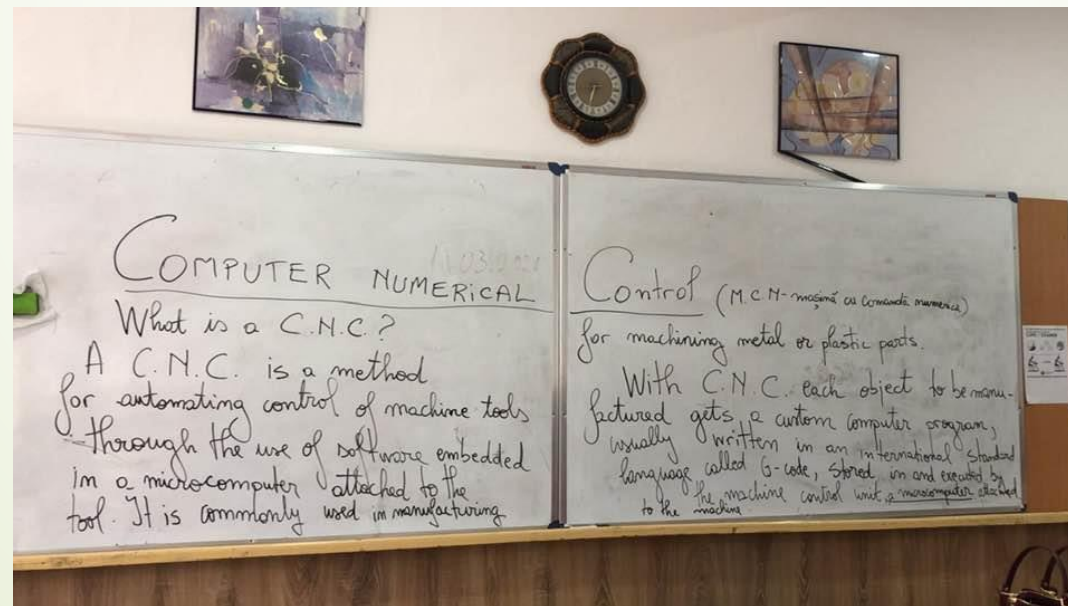 COMPUTER NUMERICAL
What is a C.N.C.?
A C.N.C. is a method
for automating control of machine tools
through the use of software embedded
in a microcomputer attached to the
tool. It is commonly used in manufacturing
Control (M.C.N-mașină cu comandă numerica)
for machining metal or plastic parts.
With C.N.C. each object to be manu-
factured gets a custom computer program,
usually written in an international standard
language called G-code, stored in and executed by
the machine control unit, a microcomputer attached
to the machine